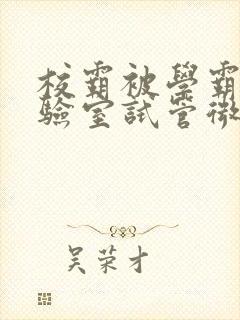 校霸被學霸
驗室試管微
吴荣才